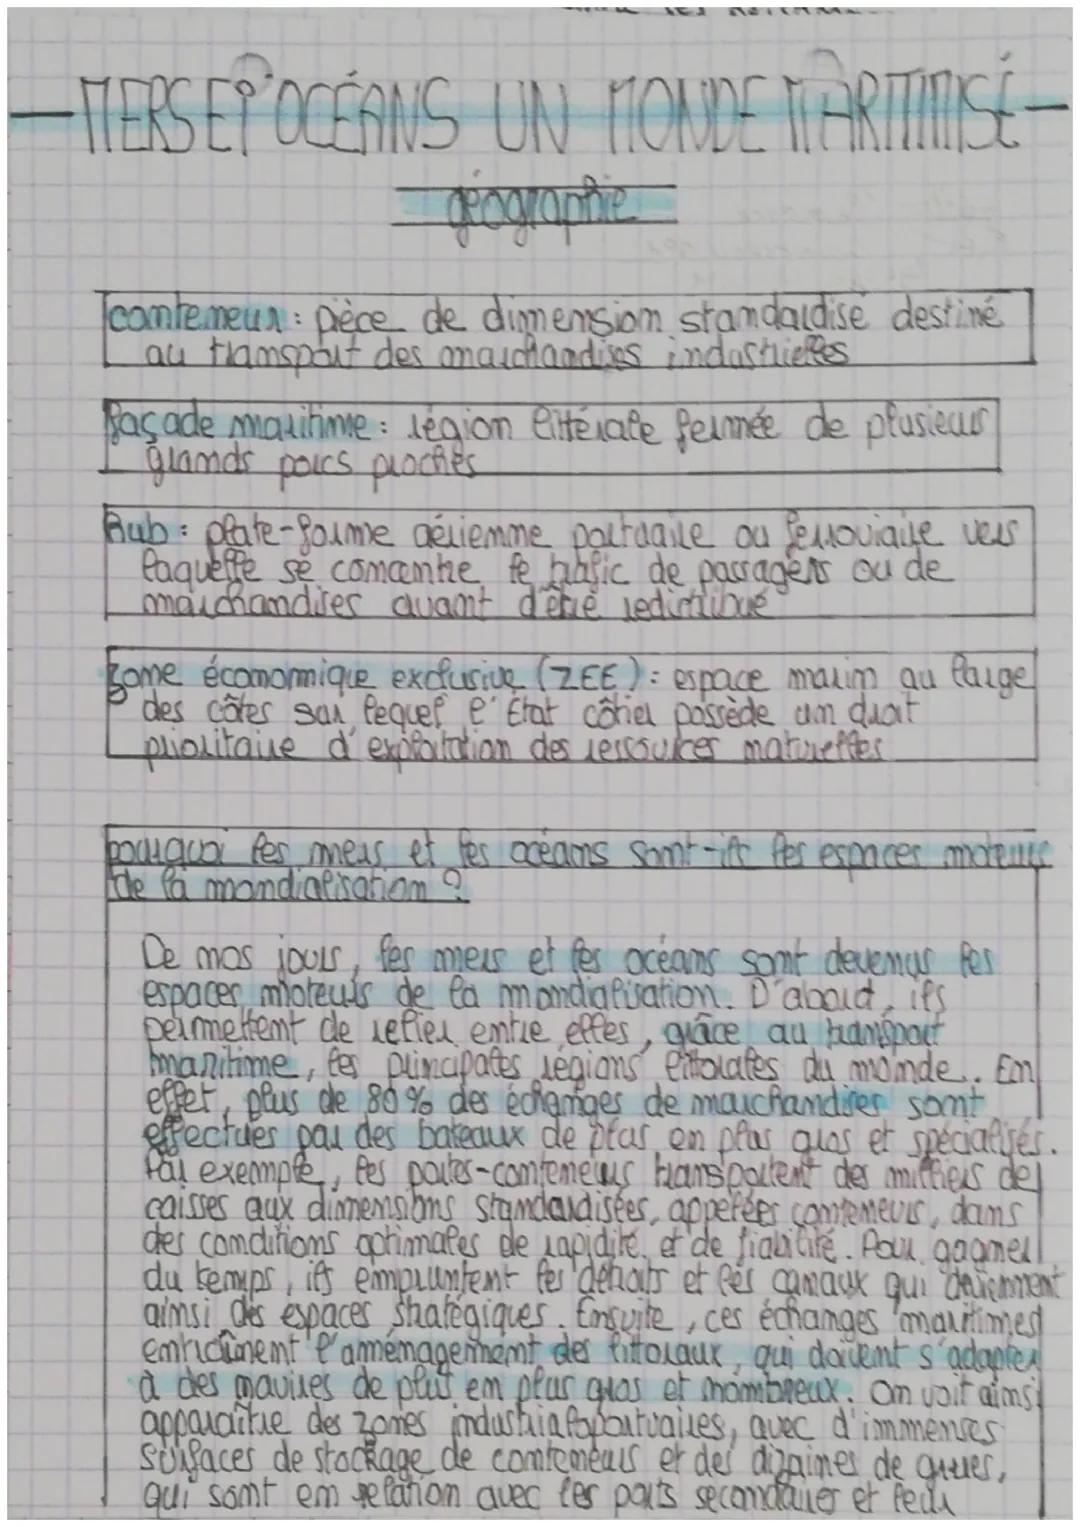 MERS ET OCÉANS UN MONDE MARITIMISÉ
géographie
conteneur : pièce de dimension standardisé destiné
au transport des marchandises industrielles
façade maritime : région littérale formée de plusieurs
grands porcs proches
Hub : plate-forme aérienne portuaire ou ferroviaire vers
laquelle se concentre le trafic de passagers ou de
marchandises avant d'être redistribué
zone économique exclusive (ZEE) : espace marin au large
des côtes sur lequel l'État côtier possède un droit
prioritaire d'exploitation des ressources naturelles
pourquoi les mers et les océans sont-ils les espaces moteurs
de la mondialisation ?
De nos jours, les mers et les océans sont devenus les
espaces moteurs de la mondialisation. D'abord, ils
permettent de relier entre elles, grâce au transport
maritime, les principales régions littorales du monde. En
effet, plus de 80% des échanges de marchandises sont
effectués par des bateaux de plus en plus gros et spécialisés.
Par exemple, les portes-conteneurs transportent des milliers de
caisses aux dimensions standardisées, appelées conteneurs, dans
des conditions optimales de rapidité et de fiabilité. Pour gagner
du temps, ils empruntent les détroits et les canaux qui deviennent
ainsi des espaces stratégiques. Ensuite, ces échanges maritimes
entraînent l'aménagement des littoraux, qui doivent s'adapter
à des navires de plus en plus gros et nombreux. On voit ainsi
apparaître des zones industrialoportuaires, avec d'immenses
surfaces de stockage de conteneurs et des dizaines de grues,
qui sont en relation avec les ports secondaires et leur